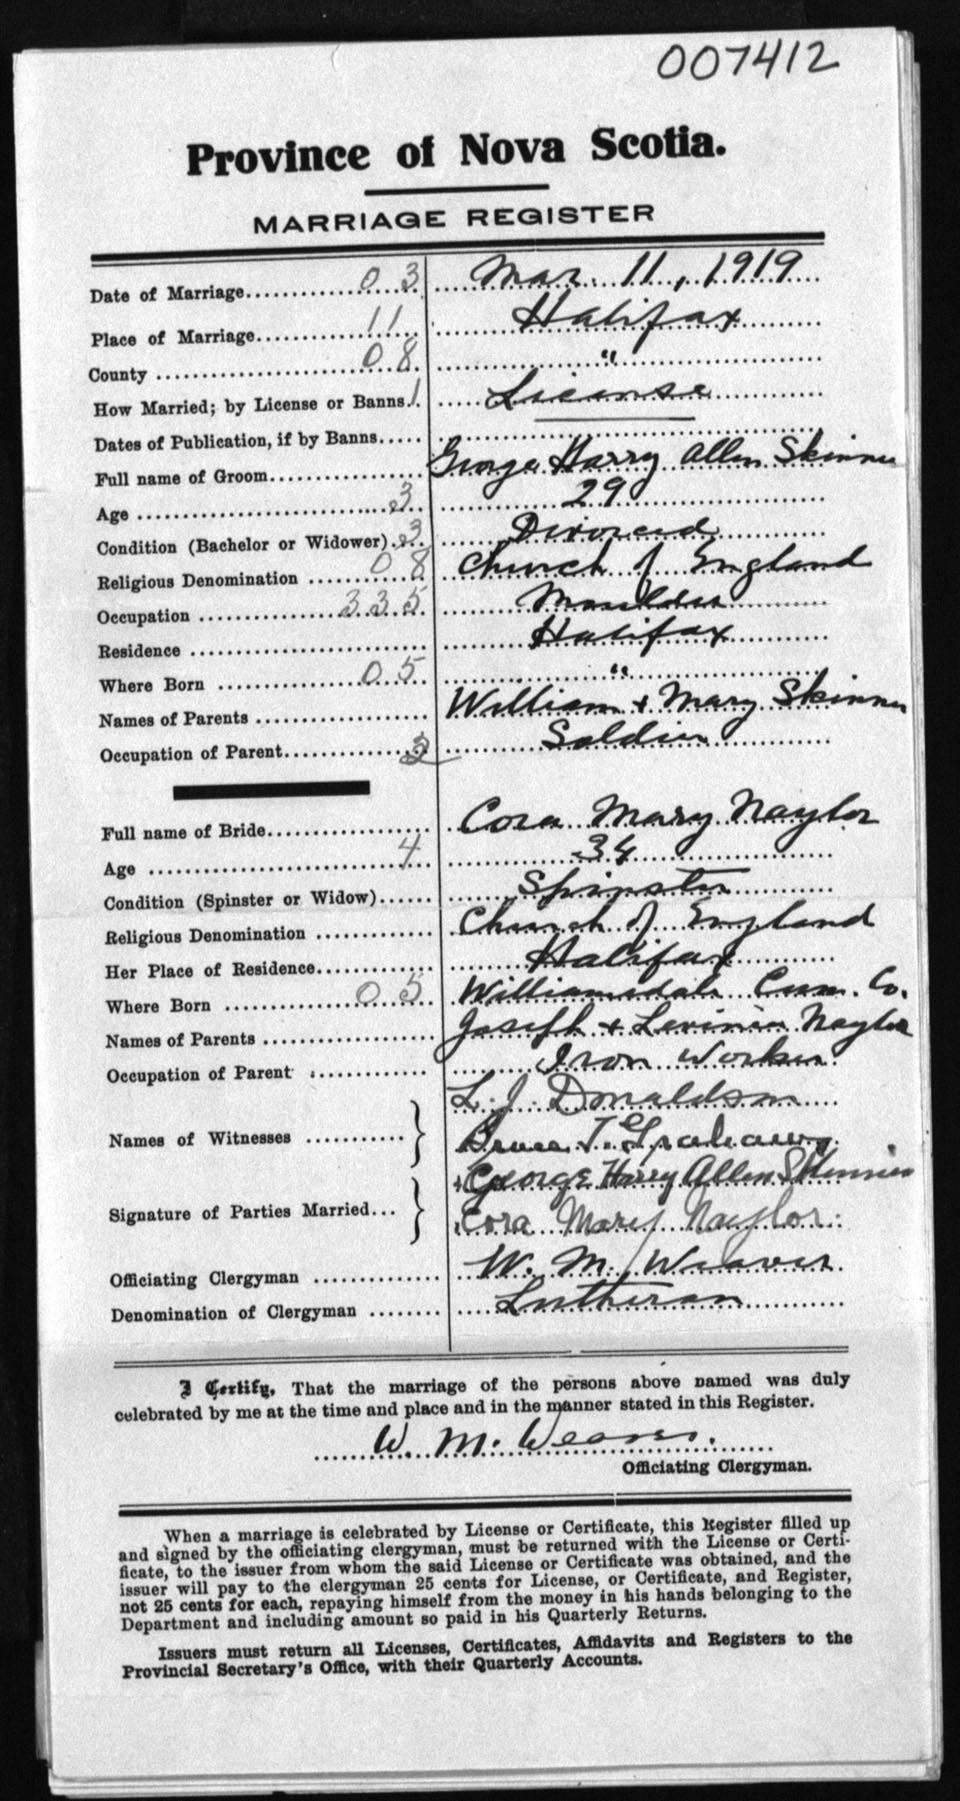 007412
Province of Nova Scotia.
MARRIAGE REGISTER
Date of Marriage 03 Mar. 11, 1919
Place of Marriage 11 Halifax
County 08 "
How Married; by License or Banns 1 License
Dates of Publication, if by Banns
Full name of Groom George Harry Allen Skinner
Age 3 29
Condition (Bachelor or Widower) 3 Divorced
Religious Denomination 08 Church of England
Occupation 335 Moulder
Residence Halifax
Where Born 05 "
Names of Parents William + Mary Skinner
Occupation of Parent 3 Soldier
Full name of Bride Cora Mary Naylor
Age 4 34
Condition (Spinster or Widow) Spinster
Religious Denomination Church of England
Her Place of Residence Halifax
Where Born 05 Williamsdale Cum. Co.
Names of Parents Joseph + Levinia Naylor
Occupation of Parent Iron Worker
L. J. Donaldson
Names of Witnesses Bruce T. Graham
George Harry Allen Skinner
Signature of Parties Married Cora Mary Naylor
Officiating Clergyman W. M. Weaver
Denomination of Clergyman Lutheran
I Certify, That the marriage of the persons above named was duly
celebrated by me at the time and place and in the manner stated in this Register.
W. M. Weaver.
Officiating Clergyman.
When a marriage is celebrated by License or Certificate, this Register filled up
and signed by the officiating clergyman, must be returned with the License or Certi-
ficate, to the issuer from whom the said License or Certificate was obtained, and the
issuer will pay to the clergyman 25 cents for License, or Certificate, and Register,
not 25 cents for each, repaying himself from the money in his hands belonging to the
Department and including amount so paid in his Quarterly Returns.
Issuers must return all Licenses, Certificates, Affidavits and Registers to the
Provincial Secretary's Office, with their Quarterly Accounts.